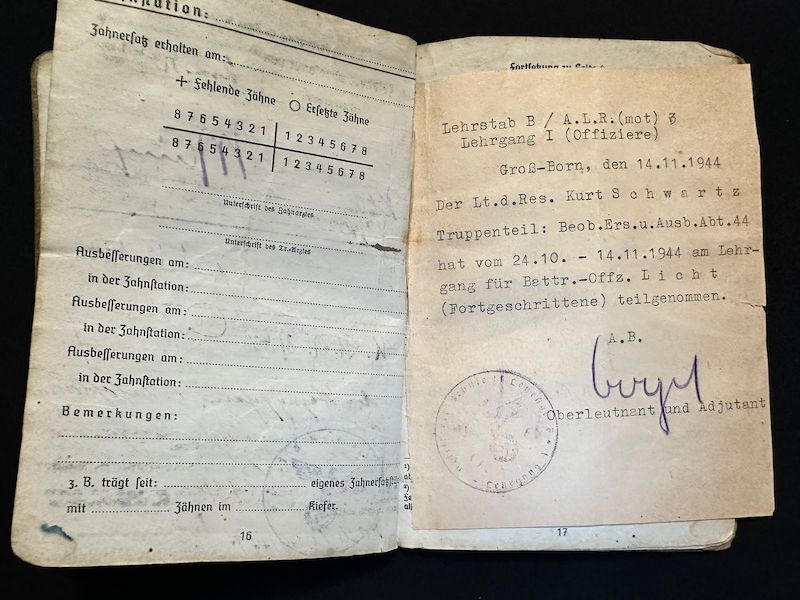 Zahnersatz erhalten am:
+ Fehlende Zähne ○ Ersetzte Zähne
8 7 6 5 4 3 2 1 | 1 2 3 4 5 6 7 8
8 7 6 5 4 3 2 1 | 1 2 3 4 5 6 7 8
Unterschrift des Zahnarztes
Unterschrift des Tr.-Arztes
Ausbesserungen am:
in der Zahnstation:
Ausbesserungen am:
in der Zahnstation:
Ausbesserungen am:
in der Zahnstation:
Bemerkungen:
z. B. trägt seit: eigenes
mit Zähnen im Kiefer.
16
Fortsetzung zu Seite
Lehrstab B / A.L.R.(mot) 3
Lehrgang I (Offiziere)
Groß-Born, den 14.11.1944
Der Lt.d.Res. Kurt S c h w a r t z
Truppenteil: Beob.Ers.u.Ausb.Abt.44
hat vom 24.10. - 14.11.1944 am Lehr-
gang für Battr.-Offz. L i c h t
(Fortgeschrittene) teilgenommen.
A.B.
Oberleutnant und Adjutant
17